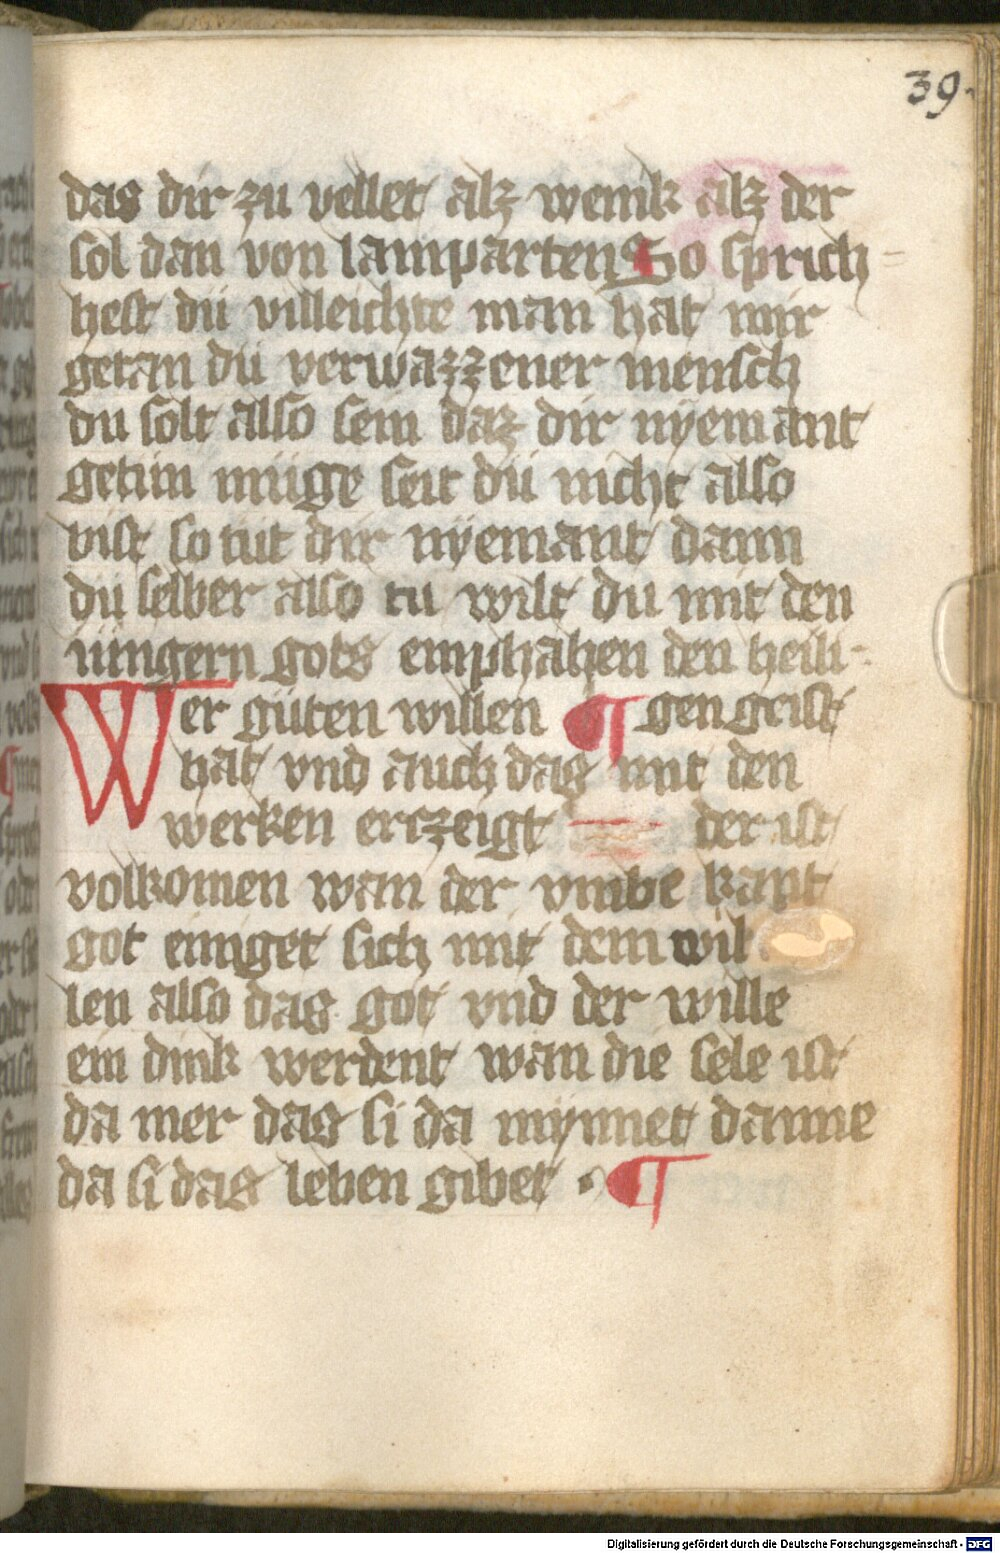 39.
das dir zu vellet alz wenik alz der
sol dan von lamparten So sprich=
hest dü villeichte man hat mir
getan dü verwazzener mensch
du solt also sein daz dir nÿemant
getün müge seit dü nicht also
vist so tüt dir nÿemant dann
dü selber also tu wilt du mit den
iüngern gots emphahen den heili-
Wer güten willen ¶ gen geist
hat vnd auch das mit den
werken erczeigt der ist
volkomen wan der vmbe kant
got einiget sich mit dem wil
len also das got vnd der wille
ein dink werdent wan die sele ist
da mer das si da mÿnnet danne
da si das leben gibet ¶
Digitalisierung gefördert durch die Deutsche Forschungsgemeinschaft - DFG